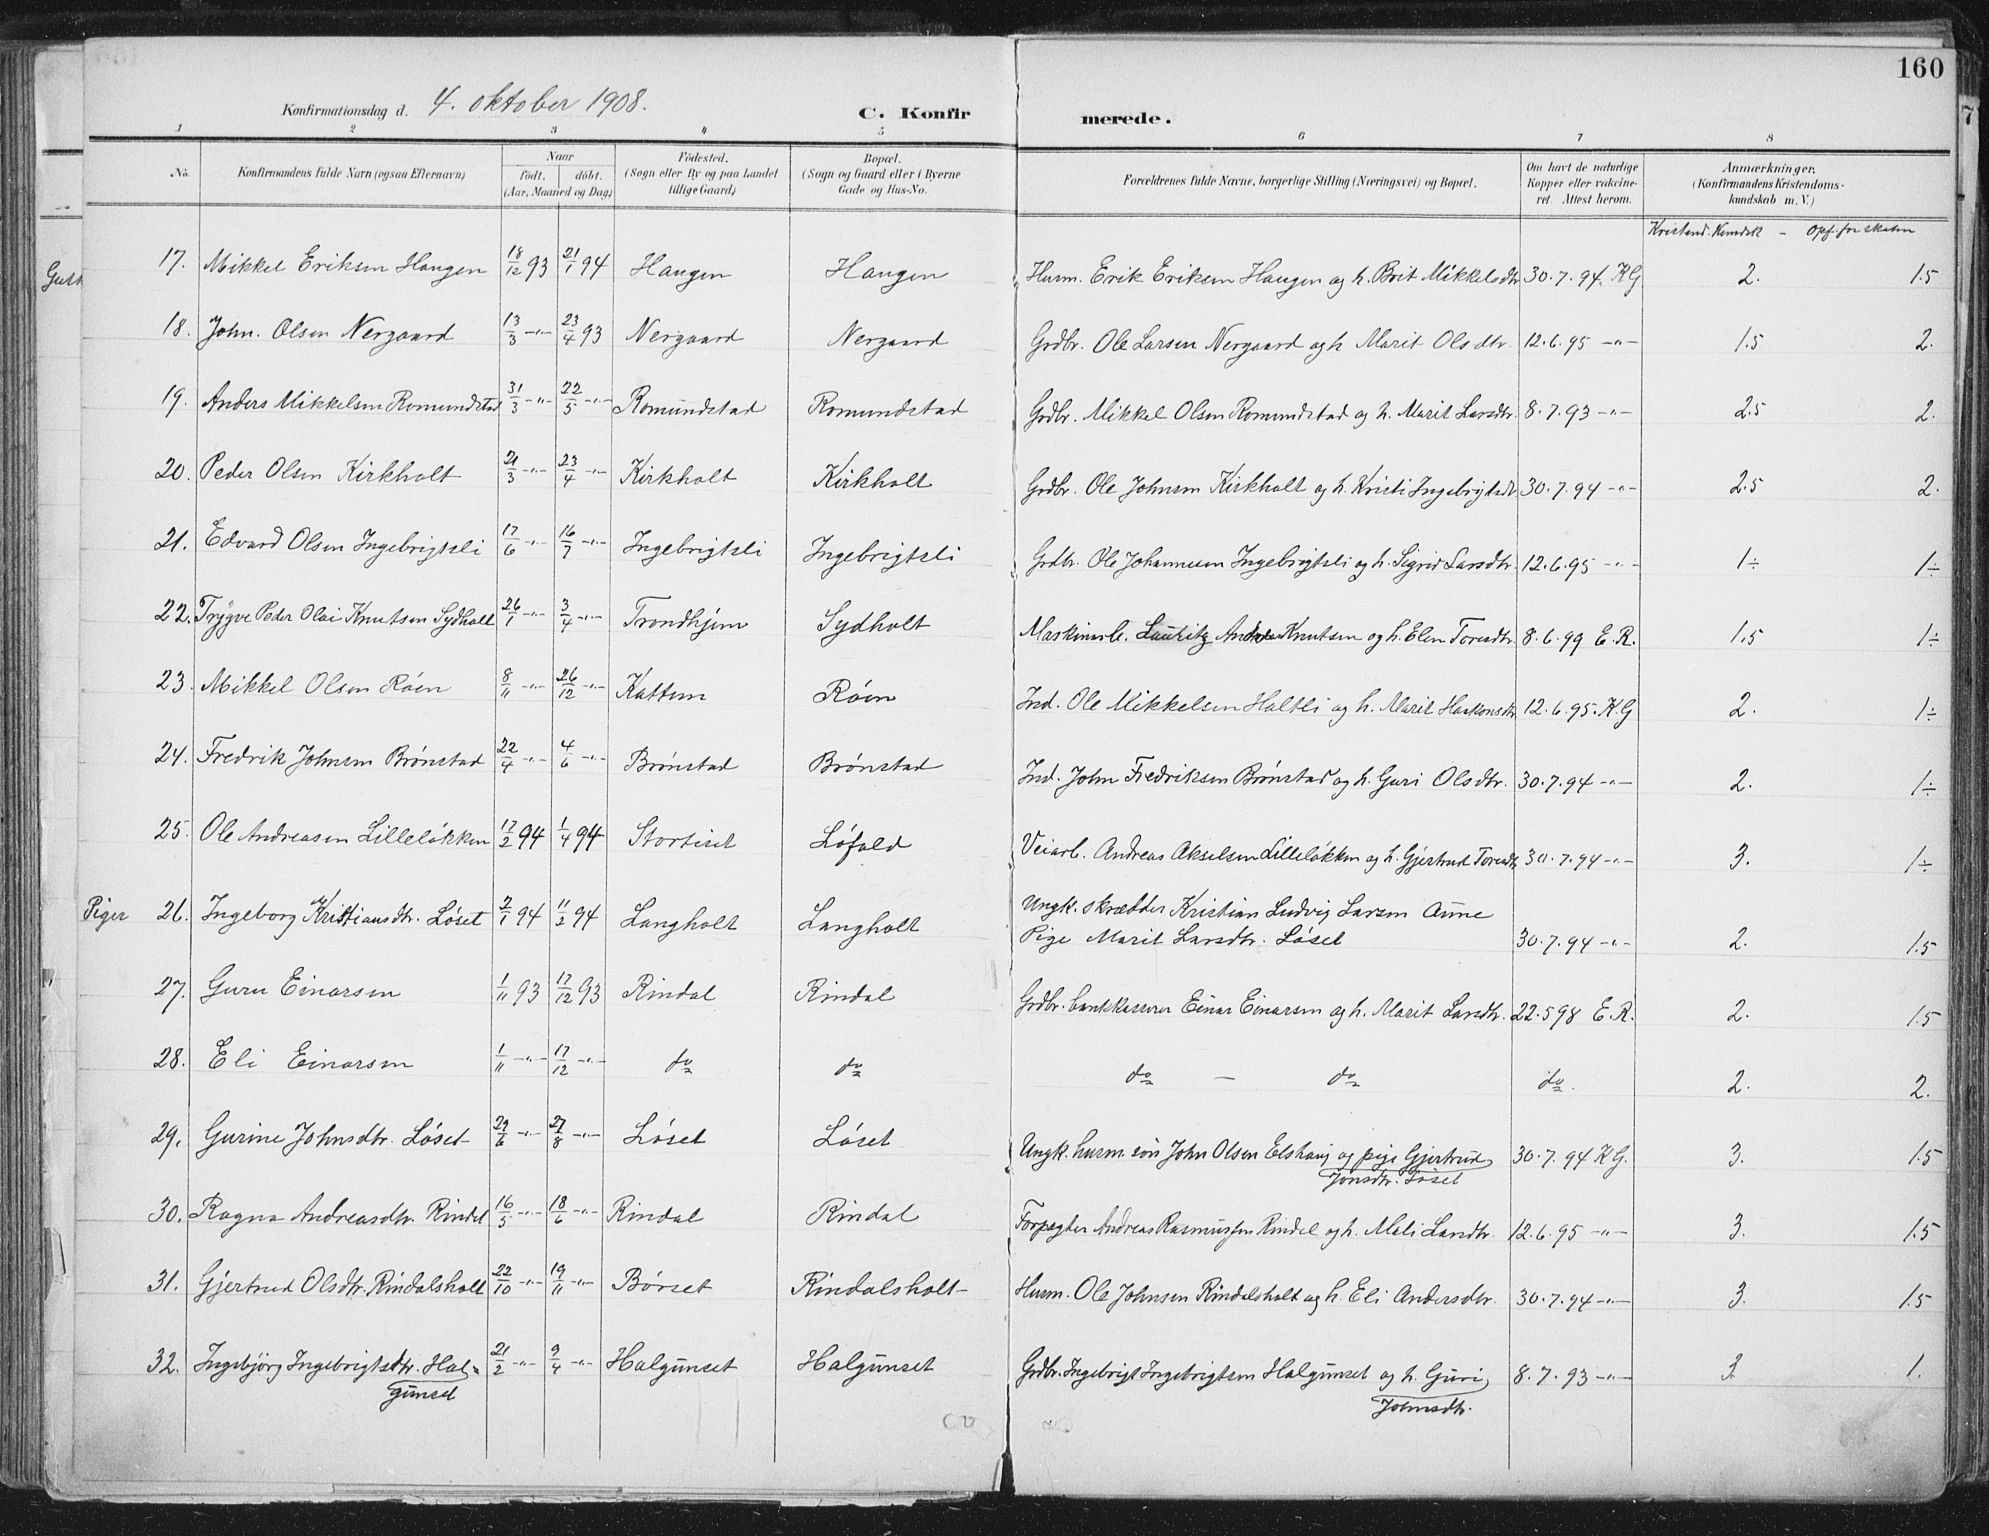 160
Konfirmationsdag d. 4. oktober 1908. C. Konfirmerede.
1 2 3 4 5 6 7 8
No. Konfirmandens fulde Navn (ogsaa Efternavn) Naar födt. döbt. (Aar, Maaned og Dag) Födested. (Sogn eller By og paa Landet tillige Gaard) Bopæl. (Sogn og Gaard eller i Byerne Gade og Hus-No. Forældrenes fulde Navne, borgerlige Stilling (Næringsvei) og Bopæl. Om havt de naturlige Kopper eller vakcineret. Attest herom. Anmærkninger. (Konfirmandens Kristendomskundskab m. V.)
Kristend. Kundsk - Opf. for skolen
17. Mikkel Eriksen Haugen 18/12 93 21/1 94 Haugen Haugen Husm. Erik Eriksen Haugen og h. Brit Mikkelsdtr 30.7.94. K G 2. 1.5
18. John. Olsen Nergaard 13/3 -"- 23/4 93 Nergaard Nergaard Grdbr. Ole Larsen Nergaard og h Marit Olsdtr. 12.6.95 -"- 1.5 2.
19. Anders Mikkelsen Romundstad 31/3 -"- 22/5 -"- Romundstad Romundstad Grdbr. Mikkel Olsen Romundstad og h. Marit Larsdtr. 8.7.93 -"- 2.5 2.
20. Peder Olsen Kirkholt 21/3 -"- 23/4 -"- Kirkholt Kirkholt Grdbr. Ole Johnsen Kirkholt og h. Kristi Ingebrigtsdt 30.7.94 -"- 2.5 2.
21. Edvard Olsen Ingebrigtsli 17/6 -"- 16/7 -"- Ingebrigtsli Ingebrigtsli Grdbr. Ole Johannesen Ingebrigtsli og h. Sigrid Larsdtr. 12.6.95 -"- 1÷ 1÷
22. Trygve Peder Olai Knutsen Sydholt 26/1 -"- 3/4 -"- Trondhjem Sydholt Maskinarb. Lauritz Anders Knutsen og h. Elen Toresdtr. 8.6.99 E.R. 1.5 1÷
23. Mikkel Olsen Röen 8/11 -"- 26/12 -"- Kattem Röen Ind. Ole Mikkelsen Holtli og h. Marit Haakonsdtr 12.6.95. K.G 2. 1÷
24. Fredrik Johnsen Brönstad 22/4 -"- 4/6 -"- Brönstad Brönstad Ind. John Fredriksen Brönstad og h. Guri Olsdtr. 30.7.94 -"- 2. 1÷
25. Ole Andreasen Lillelökken 17/2 94 1/4 94 Löfald Veiarb. Andreas Akselsen Lillelökken og h. Gjertrud Toresdtr 30.7.94 -"- 3. 1÷
Piger 26. Ingeborg Kristiansdtr. Löset 2/1 94 11/2 94 Langholt Langholt Ungk. skrædder Kristian Ludvig Larsen Aune
Pige Marit Larsdtr. Löset 30.7.94 -"- 2. 1.5
27. Guru Einarsen 1/11 93 17/12 93 Rindal Rindal Grdbr. bankkasserer Einar Einarsen og h. Marit Larsdtr. 22.5 98 E.R. 2. 1.5
28. Eli Einarsen 1/11 -"- 17/12 -"- do do do - do do. 2. 2.
29. Gurine Johnsdtr. Löset 29/6 -"- 27/8 -"- Löset Löset Ungk. husm. sön John Olsen Elshaug og pige Gjertrud 30.7.94 K G. 3. 1.5
Jonsdtr. Löset
30. Ragna Andreasdtr. Rindal 16/5 -"- 18/6 -"- Rindal Rindal Forpagter Andreas Rasmussen Rindal og h. Mali Larsdtr. 12.6.95 -"- 3. 1.5
31. Gjertrud Olsdtr. Rindalsholt 22/10 -"- 19/11 -"- Börset Rindalsholt Husm. Ole Johnsen Rindalsholt og h. Eli Andersdtr. 30.7.94 -"- 3. 1.5
32. Ingebjörg Ingebrigtsdtr. Hal= 21/2 -"- 9/4 -"- Halgunset Halgunset Grdbr. Ingebrigt Ingebrigtsen Halgunset og h. Guri 8.7.93 -"- 3. 1.
gunset Johnsdtr.